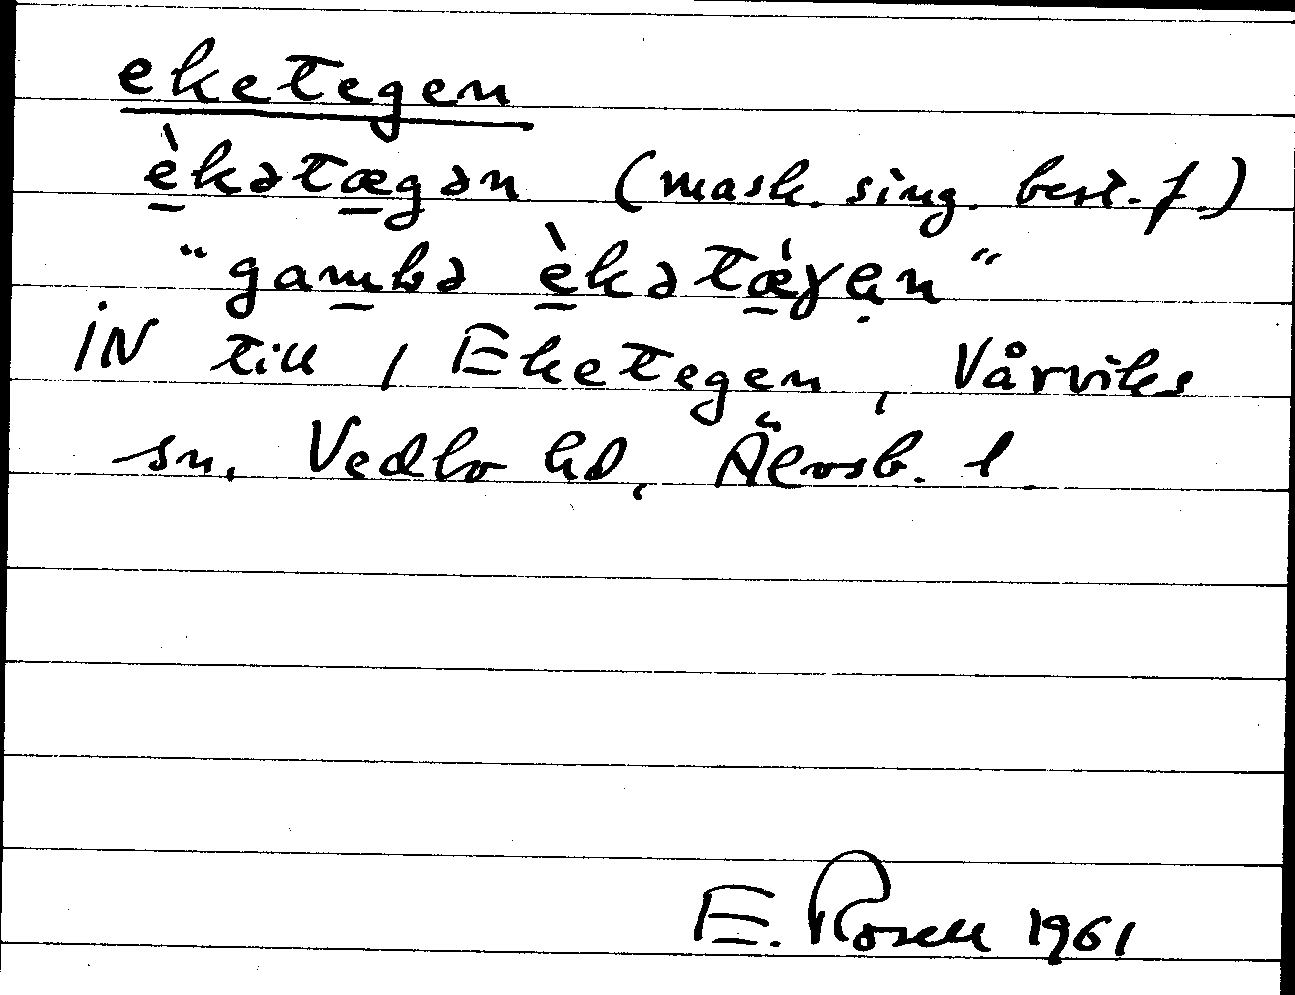 eketegen
è̱kətæ̱gən (mask. sing. best. f.)
"gam̱bə è̱kətǽ̱γẹn"
iN till 1 Eketegen, Vårviks
sn, Vedbo hd, Älvsb. l.
E. Rosell 1961